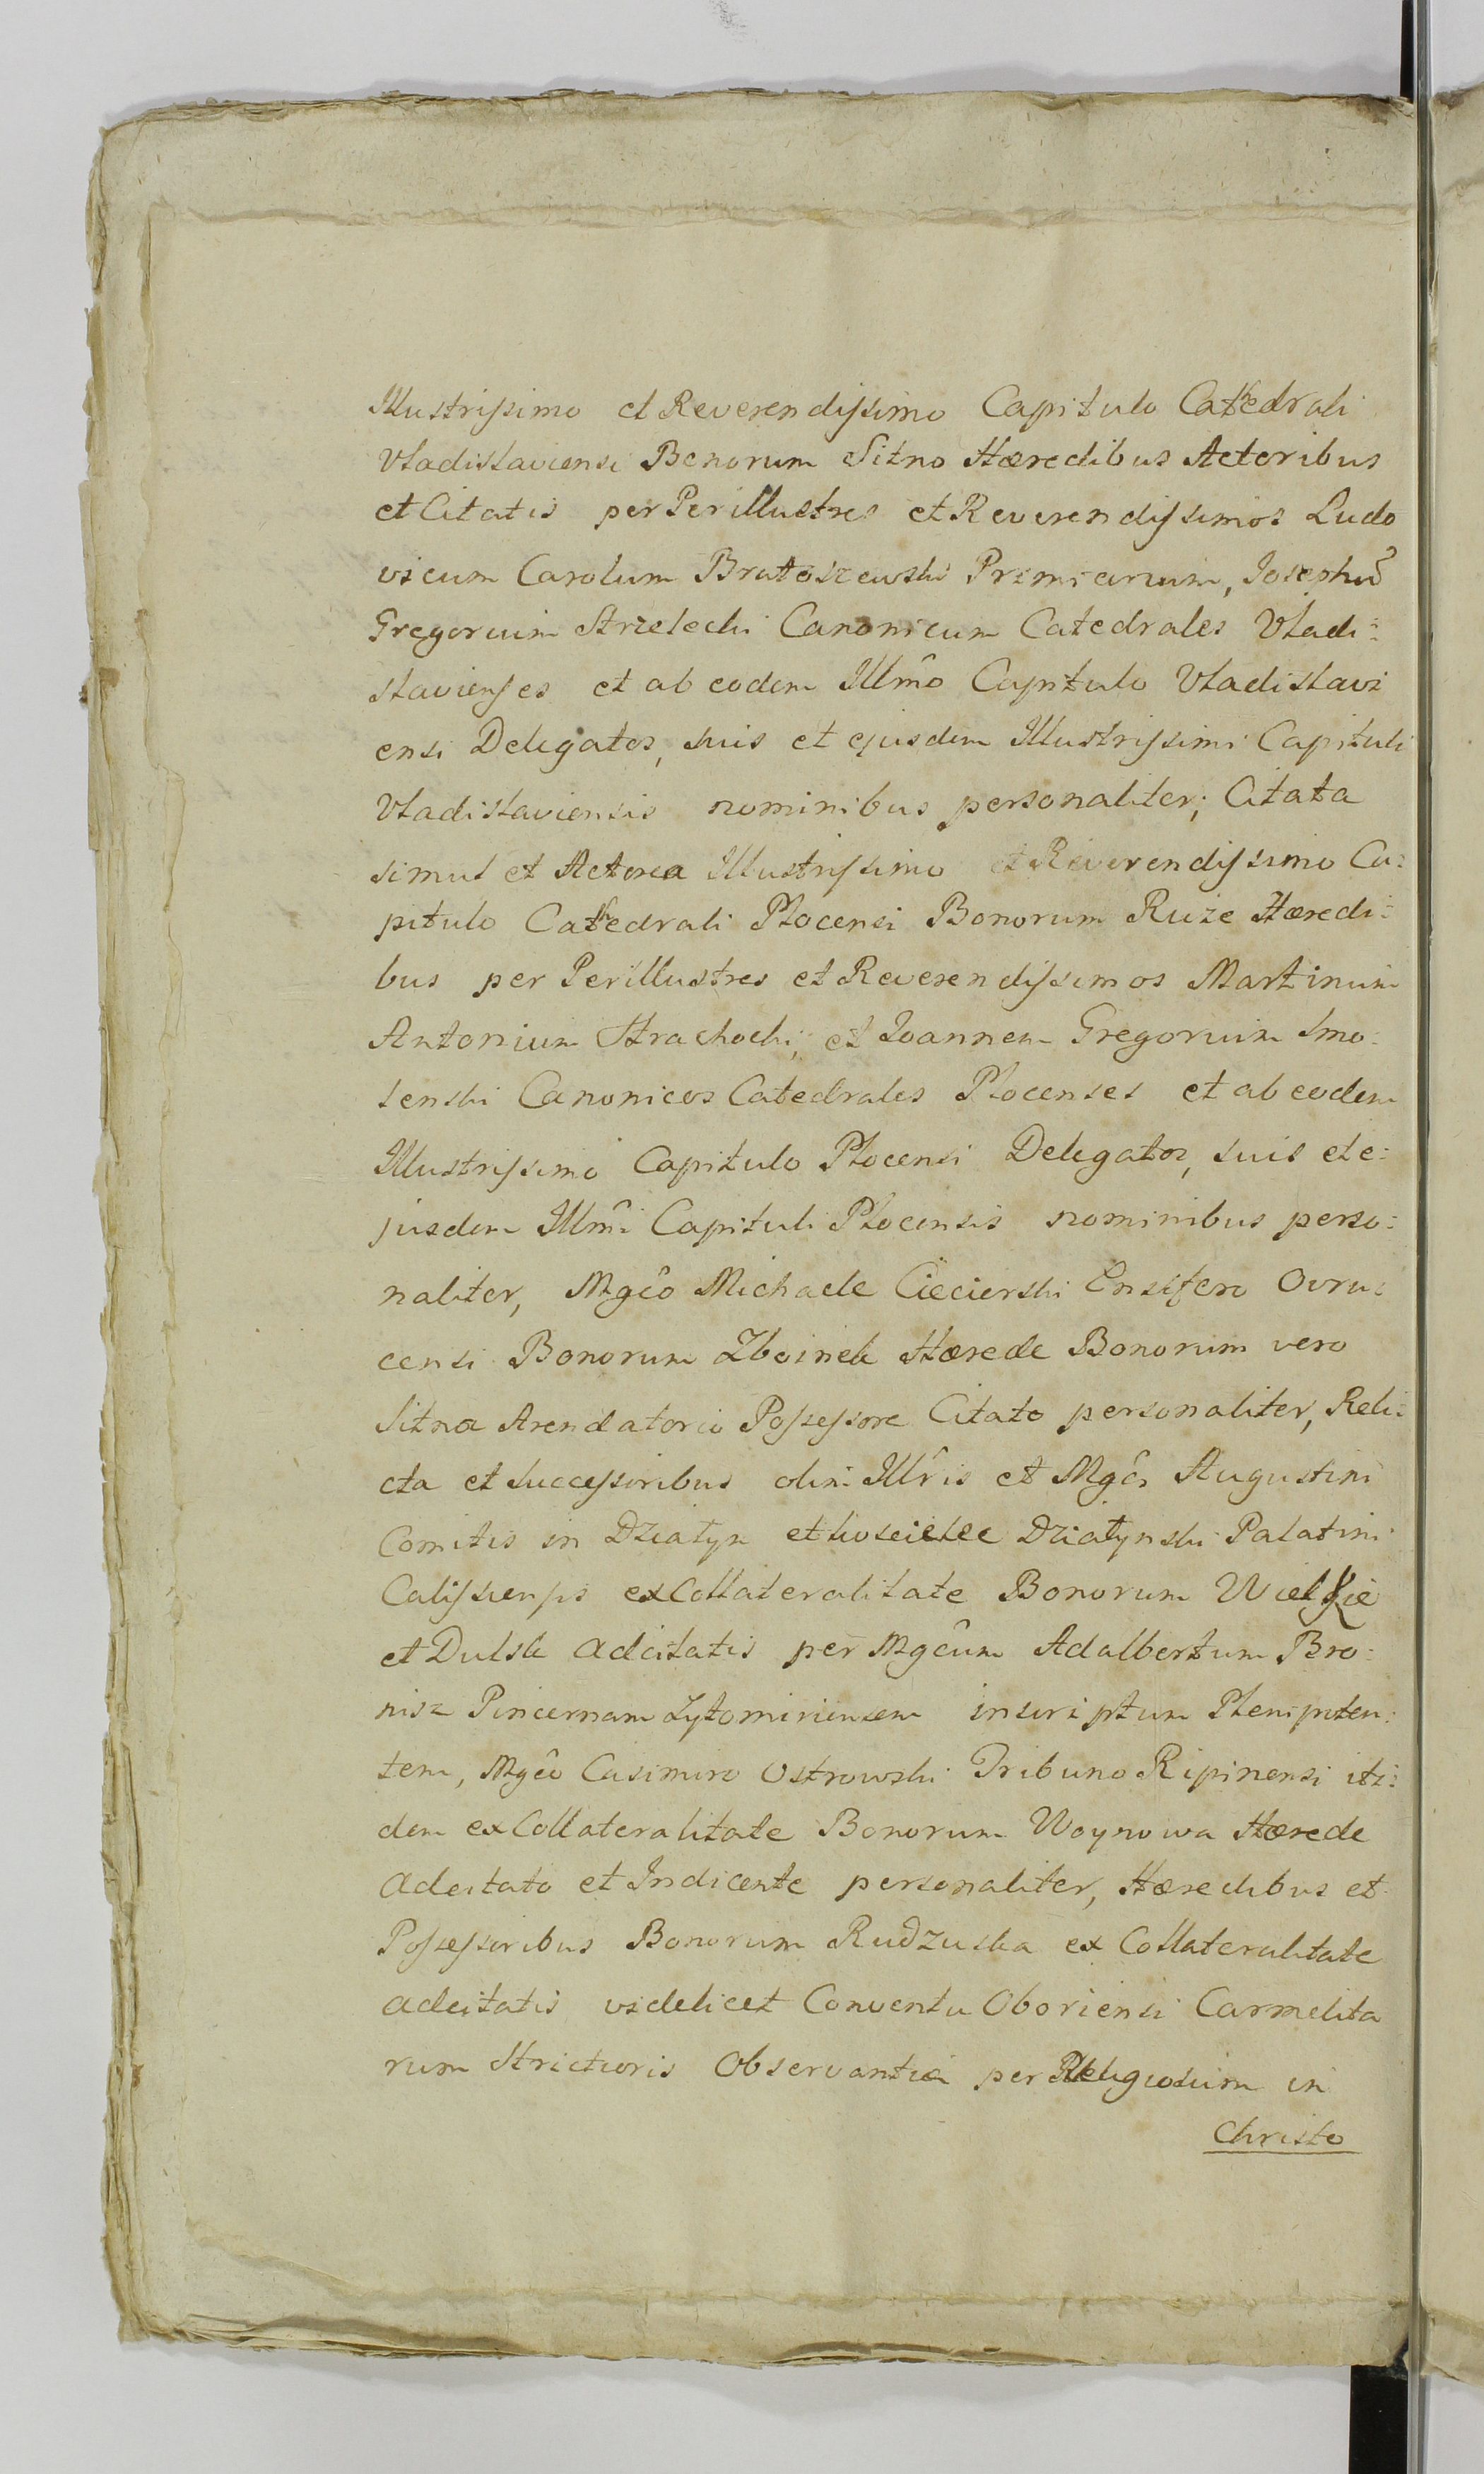 Illustrissimo et Reverendissimo Capitulo Cathedrali
Vladislaviensi Bonorum Sitno Hæredibus Actoribus
et Citatis per Perillustres et Reverendissimos Ludo
vicum Carolum Bratoszewski Primicerium, Josephū
Gregorium Strzelecki Canonicum Catedrales Vladi=
slavienses et ab eodem Illm̂o Capitulo Vladislavi
ensi Delegatos, suis et ejusdem Illustrissimi Capituli
Vladislaviensis nominibus personaliter; Citata
simul et Actorea Illustrissimo et Reverendissimo Ca=
pitulo Cathedrali Plocensi Bonorum Ruże Hæredi=
bus per Perillustres et Reverendissimos Martinum
Antonium Strachocki, et Joannem Gregorium Smo=
lenski Canonicos Catedrales Plocenses et ab eodem
Illustrissimo Capitulo Plocensi Delegatos, suis et e=
jusdem Illm̂i Capituli Plocensis nominibus perso=
naliter, Mgĉo Michaele Ciecierski Ensifero Ovru=
censi Bonorum Zboinek Hærede Bonorum vero
Sitna Arendatorio Possessore Citato personaliter, Reli=
cta et Successoribus olim Illr̂is et Mgĉi Augustini
Comitis in Działyn et Kościelec Działynski Palatini
Calissiensis ex Collateralitate Bonorum Wielkie
et Dulsk adcitatis per Mgĉum Adalbertum Bro=
nisz Pincernam Zytomiriensem inscriptum Plenipoten=
tem, Mgĉo Casimiro Ostrowski Tribuno Ripinensi iti=
dem ex Collateralitate Bonorum Woynowa Hærede
adcitato et Indicente personaliter, Hæredibus et
Possessoribus Bonorum Rudzuska ex Collateralitate
adcitatis videlicet Conventu Oboriensi Carmelita
rum Strictioris Observantiæ per Religiosum in
Christo